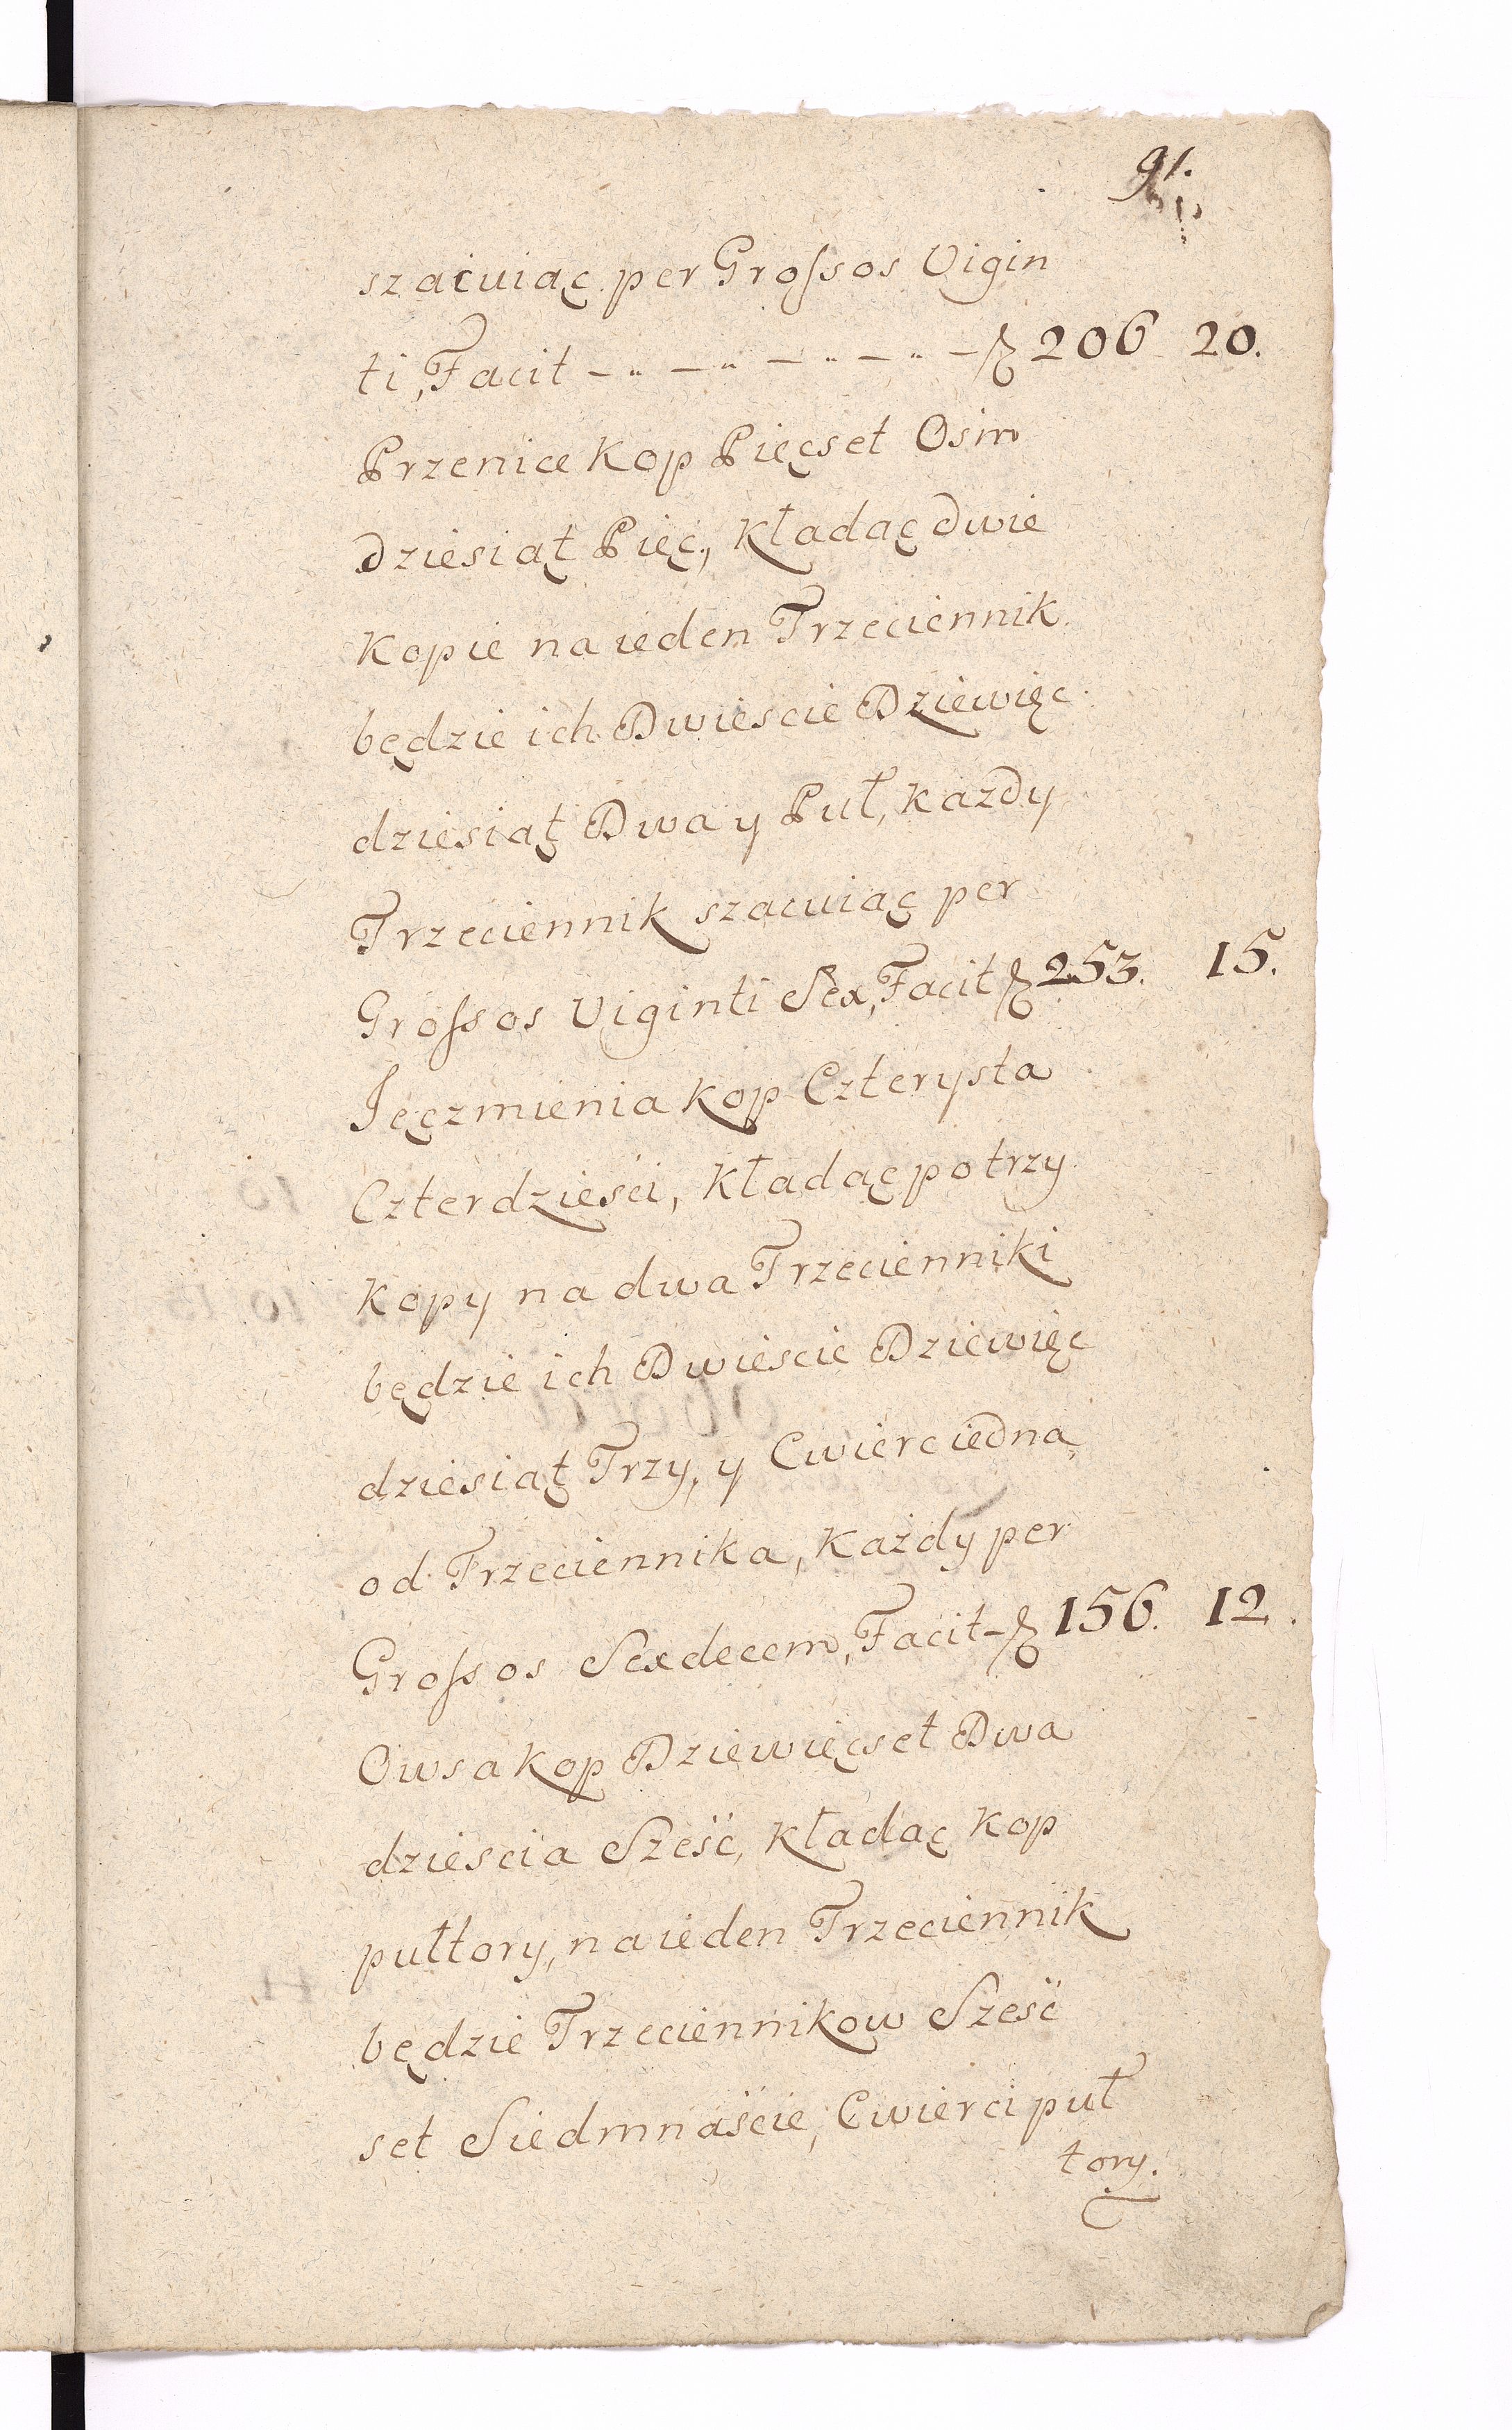 91.
szacuiąc per Grossos Vigin
ti, Facit – „ – „ – „ – „ – 206 20.
Przenice Kop Pięcset Osim
dziesiąt Pięc, Kładąc dwie
Kopie na ieden Trzeciennik.
będzie ich Dwiescie Dziewięc
dziesiąt Dwa y Puł, Kazdy
Trzeciennik szacuiąc per
Grossos Viginti Sex, Facit 253. 15.
Jęczmienia Kop Czterysta
Czterdziesci, Kładąc po trzy
Kopy na dwa Trzecienniki
będzie ich Dwiescie Dziewięc
dziesiąt Trzy, y Cwierc iedna
od Trzeciennika, Każdy per
Grossos Sexdecem, Facit – 156. 12.
Owsa Kop Dziewięcset Dwa
dziescia Sześć, Kładąc Kop
pułtory, na ieden Trzeciennik
będzie Trzeciennikow Sześć
set Siedmnaście, Cwierci puł
tory.